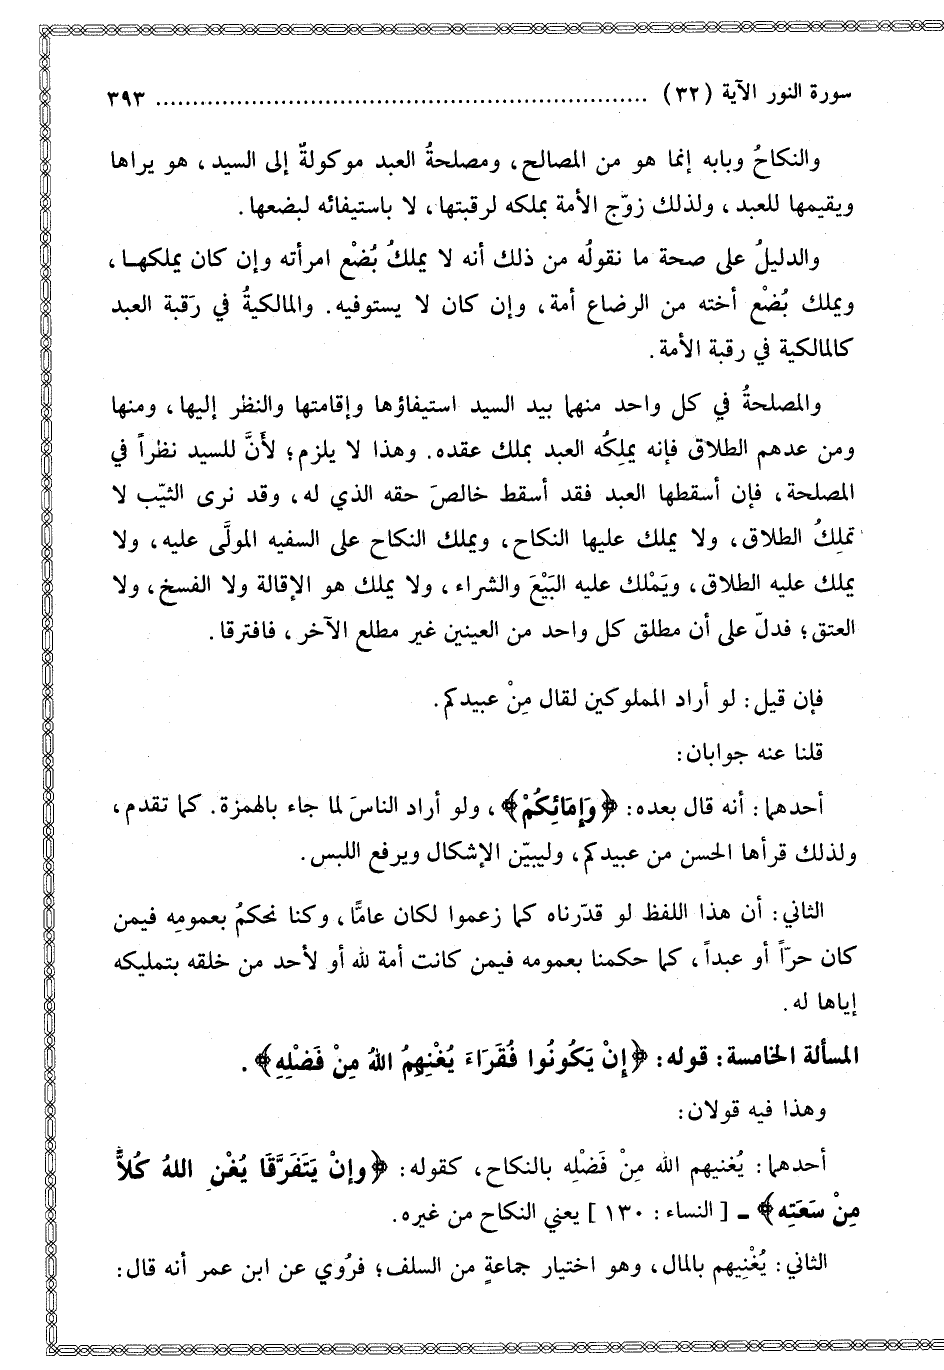 سورة النور الآية (٣٢) .................................................................... ٣٩٣
والنكاحُ وبابه إنما هو من المصالح، ومصلحةُ العبد موكولةٌ إلى السيد، هو يراها
ويقيمها للعبد، ولذلك زوّج الأمة بملكه لرقبتها، لا باستيفائه لبضعها.
والدليلُ على صحة ما نقولُه من ذلك أنه لا يملكُ بُضْع امرأته وإن كان يملكهـا،
ويملك بُضْع أخته من الرضاع أمة، وإن كان لا يستوفيه. والمالكيةُ في رقبة العبد
كالمالكية في رقبة الأمة.
والمصلحةُ في كل واحد منهما بيد السيد استيفاؤها وإقامتها والنظر إليها، ومنها
ومن عدهم الطلاق فإنه يملِكُه العبد بملك عقده. وهذا لا يلزم؛ لأنَّ للسيد نظراً في
المصلحة، فإن أسقطها العبد فقد أسقط خالصَ حقه الذي له، وقد نرى الثيّب لا
تملِكُ الطلاق، ولا يملك عليها النكاح، ويملك النكاح على السفيه المولَّى عليه، ولا
يملك عليه الطلاق، ويَمْلك عليه البَيْعَ والشراء، ولا يملك هو الإقالة ولا الفسخ، ولا
العتق؛ فدلّ على أن مطلق كل واحد من العينين غير مطلع الآخر، فافترقا.
فإن قيل: لو أراد المملوكين لقال مِنْ عبيدكم.
قلنا عنه جوابان:
أحدهما: أنه قال بعده: ﴿وَإِمَائِكُمْ﴾، ولو أراد الناسَ لما جاء بالهمزة. كما تقدم،
ولذلك قرأها الحسن من عبيدكم، وليبيّن الإشكال ويرفع اللبس.
الثاني: أن هذا اللفظ لو قدّرناه كما زعموا لكان عامًّا، وكنا نحكمُ بعمومِه فيمن
كان حرّاً أو عبداً، كما حكمنا بعمومه فيمن كانت أمة لله أو لأحد من خلقه بتمليكه
إياها له.
المسألة الخامسة: قوله: ﴿إِنْ يَكُونُوا فُقَرَاءَ يُغْنِهِمُ اللهُ مِنْ فَضْلِهِ﴾.
وهذا فيه قولان:
أحدهما: يُغنيهم الله مِنْ فَضْلِه بالنكاح، كقوله: ﴿وإنْ يَتَفَرَّقَا يُغْنِ اللهُ كُلاًّ
مِنْ سَعَتِه﴾ ـ [النساء: ١٣٠] يعني النكاح من غيره.
الثاني: يُغْنِيهم بالمال، وهو اختيار جماعةٍ من السلف؛ فرُوي عن ابن عمر أنه قال: